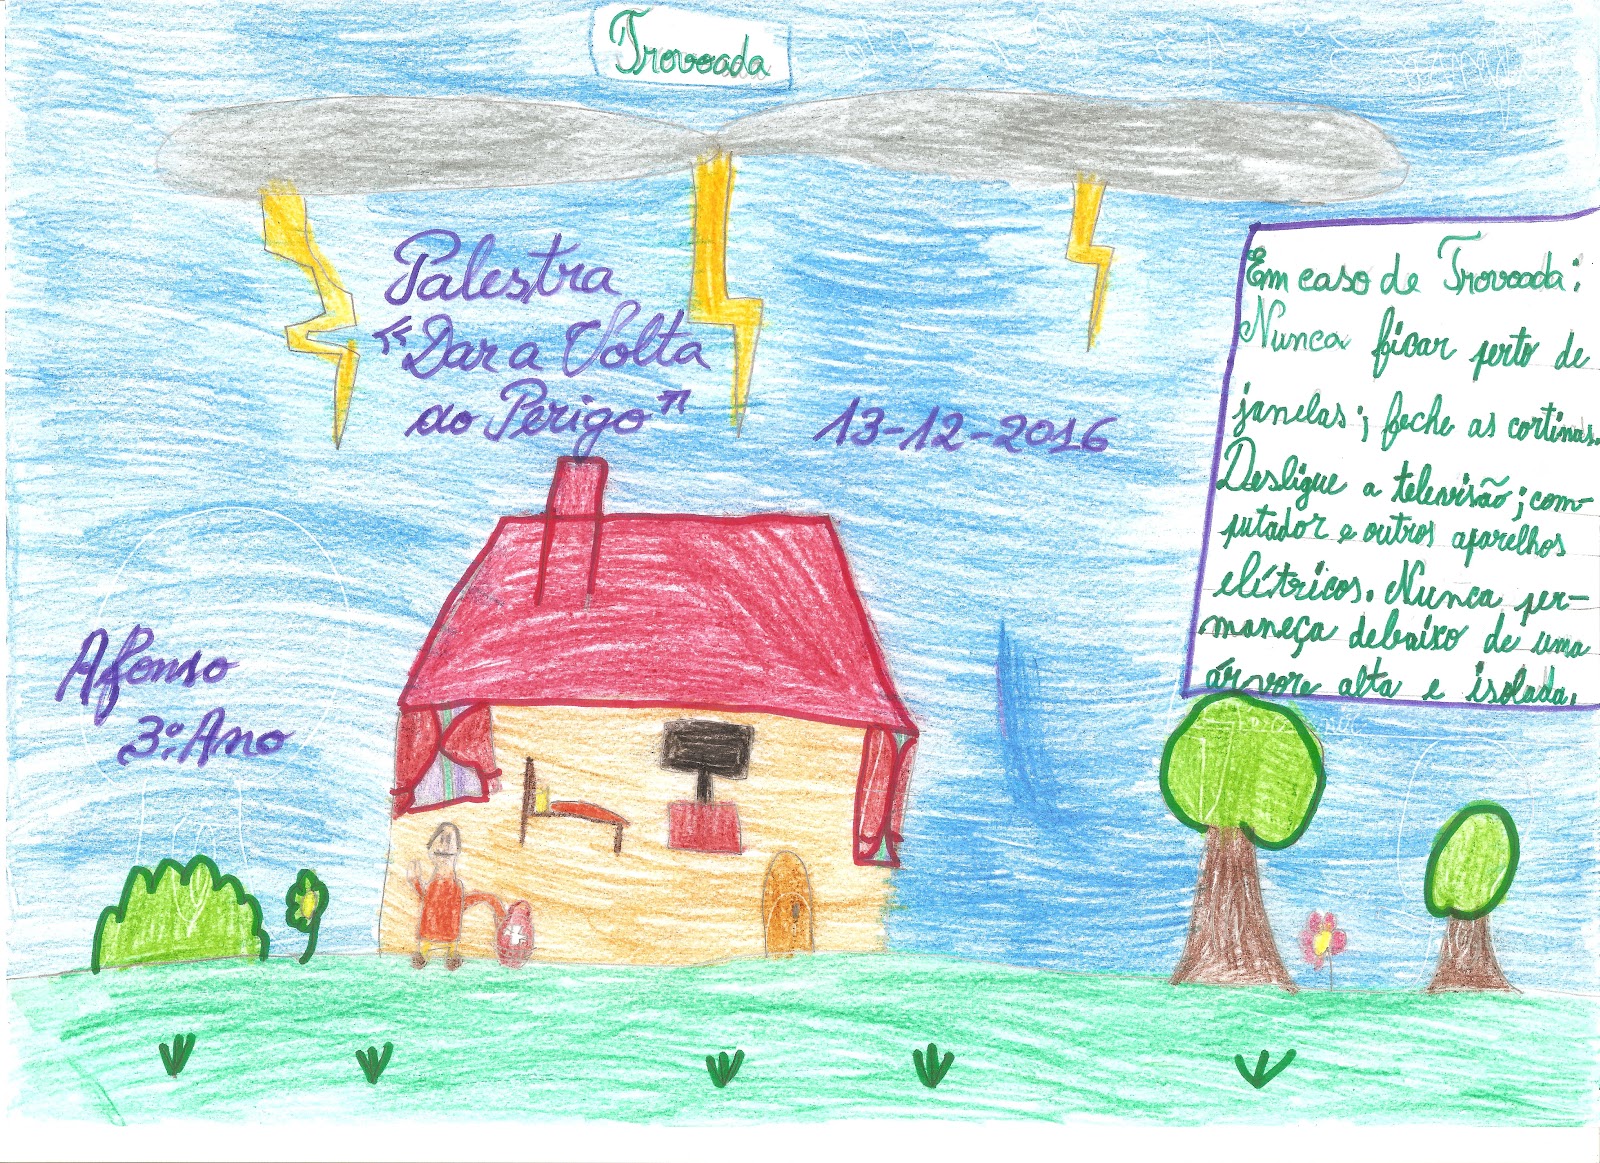 Trovoada
Palestra
"Dar a Volta
ao Perigo"
13-12-2016
Em caso de Trovoada:
Nunca ficar perto de
janelas; feche as cortinas.
Desligue a televisão; com-
putador e outros aparelhos
elétricos. Nunca per-
maneça debaixo de uma
árvore alta e isolada.
Afonso
3º. Ano